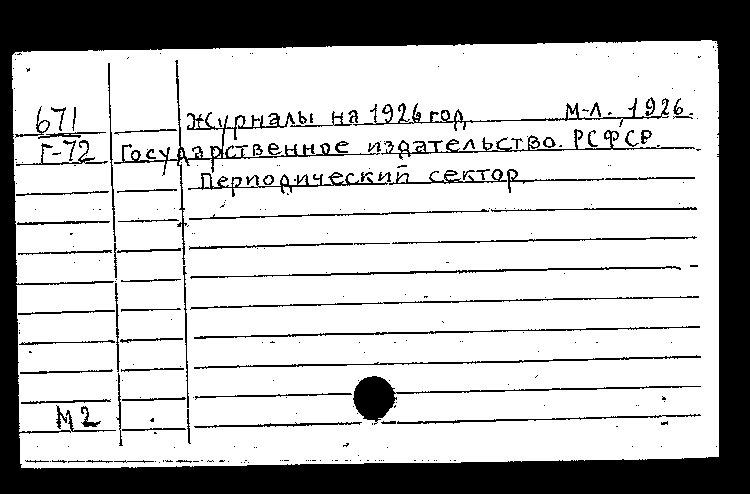 671 Журналы на 1926 год. М-Л. 1926.
Г-72 Государственное издательство. РСФСР.
Периодический сектор
М2